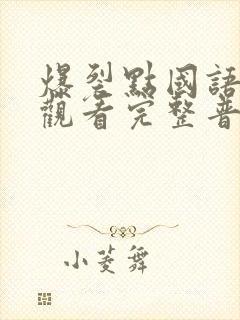 爆裂點國語
觀看完整普
小菱舞